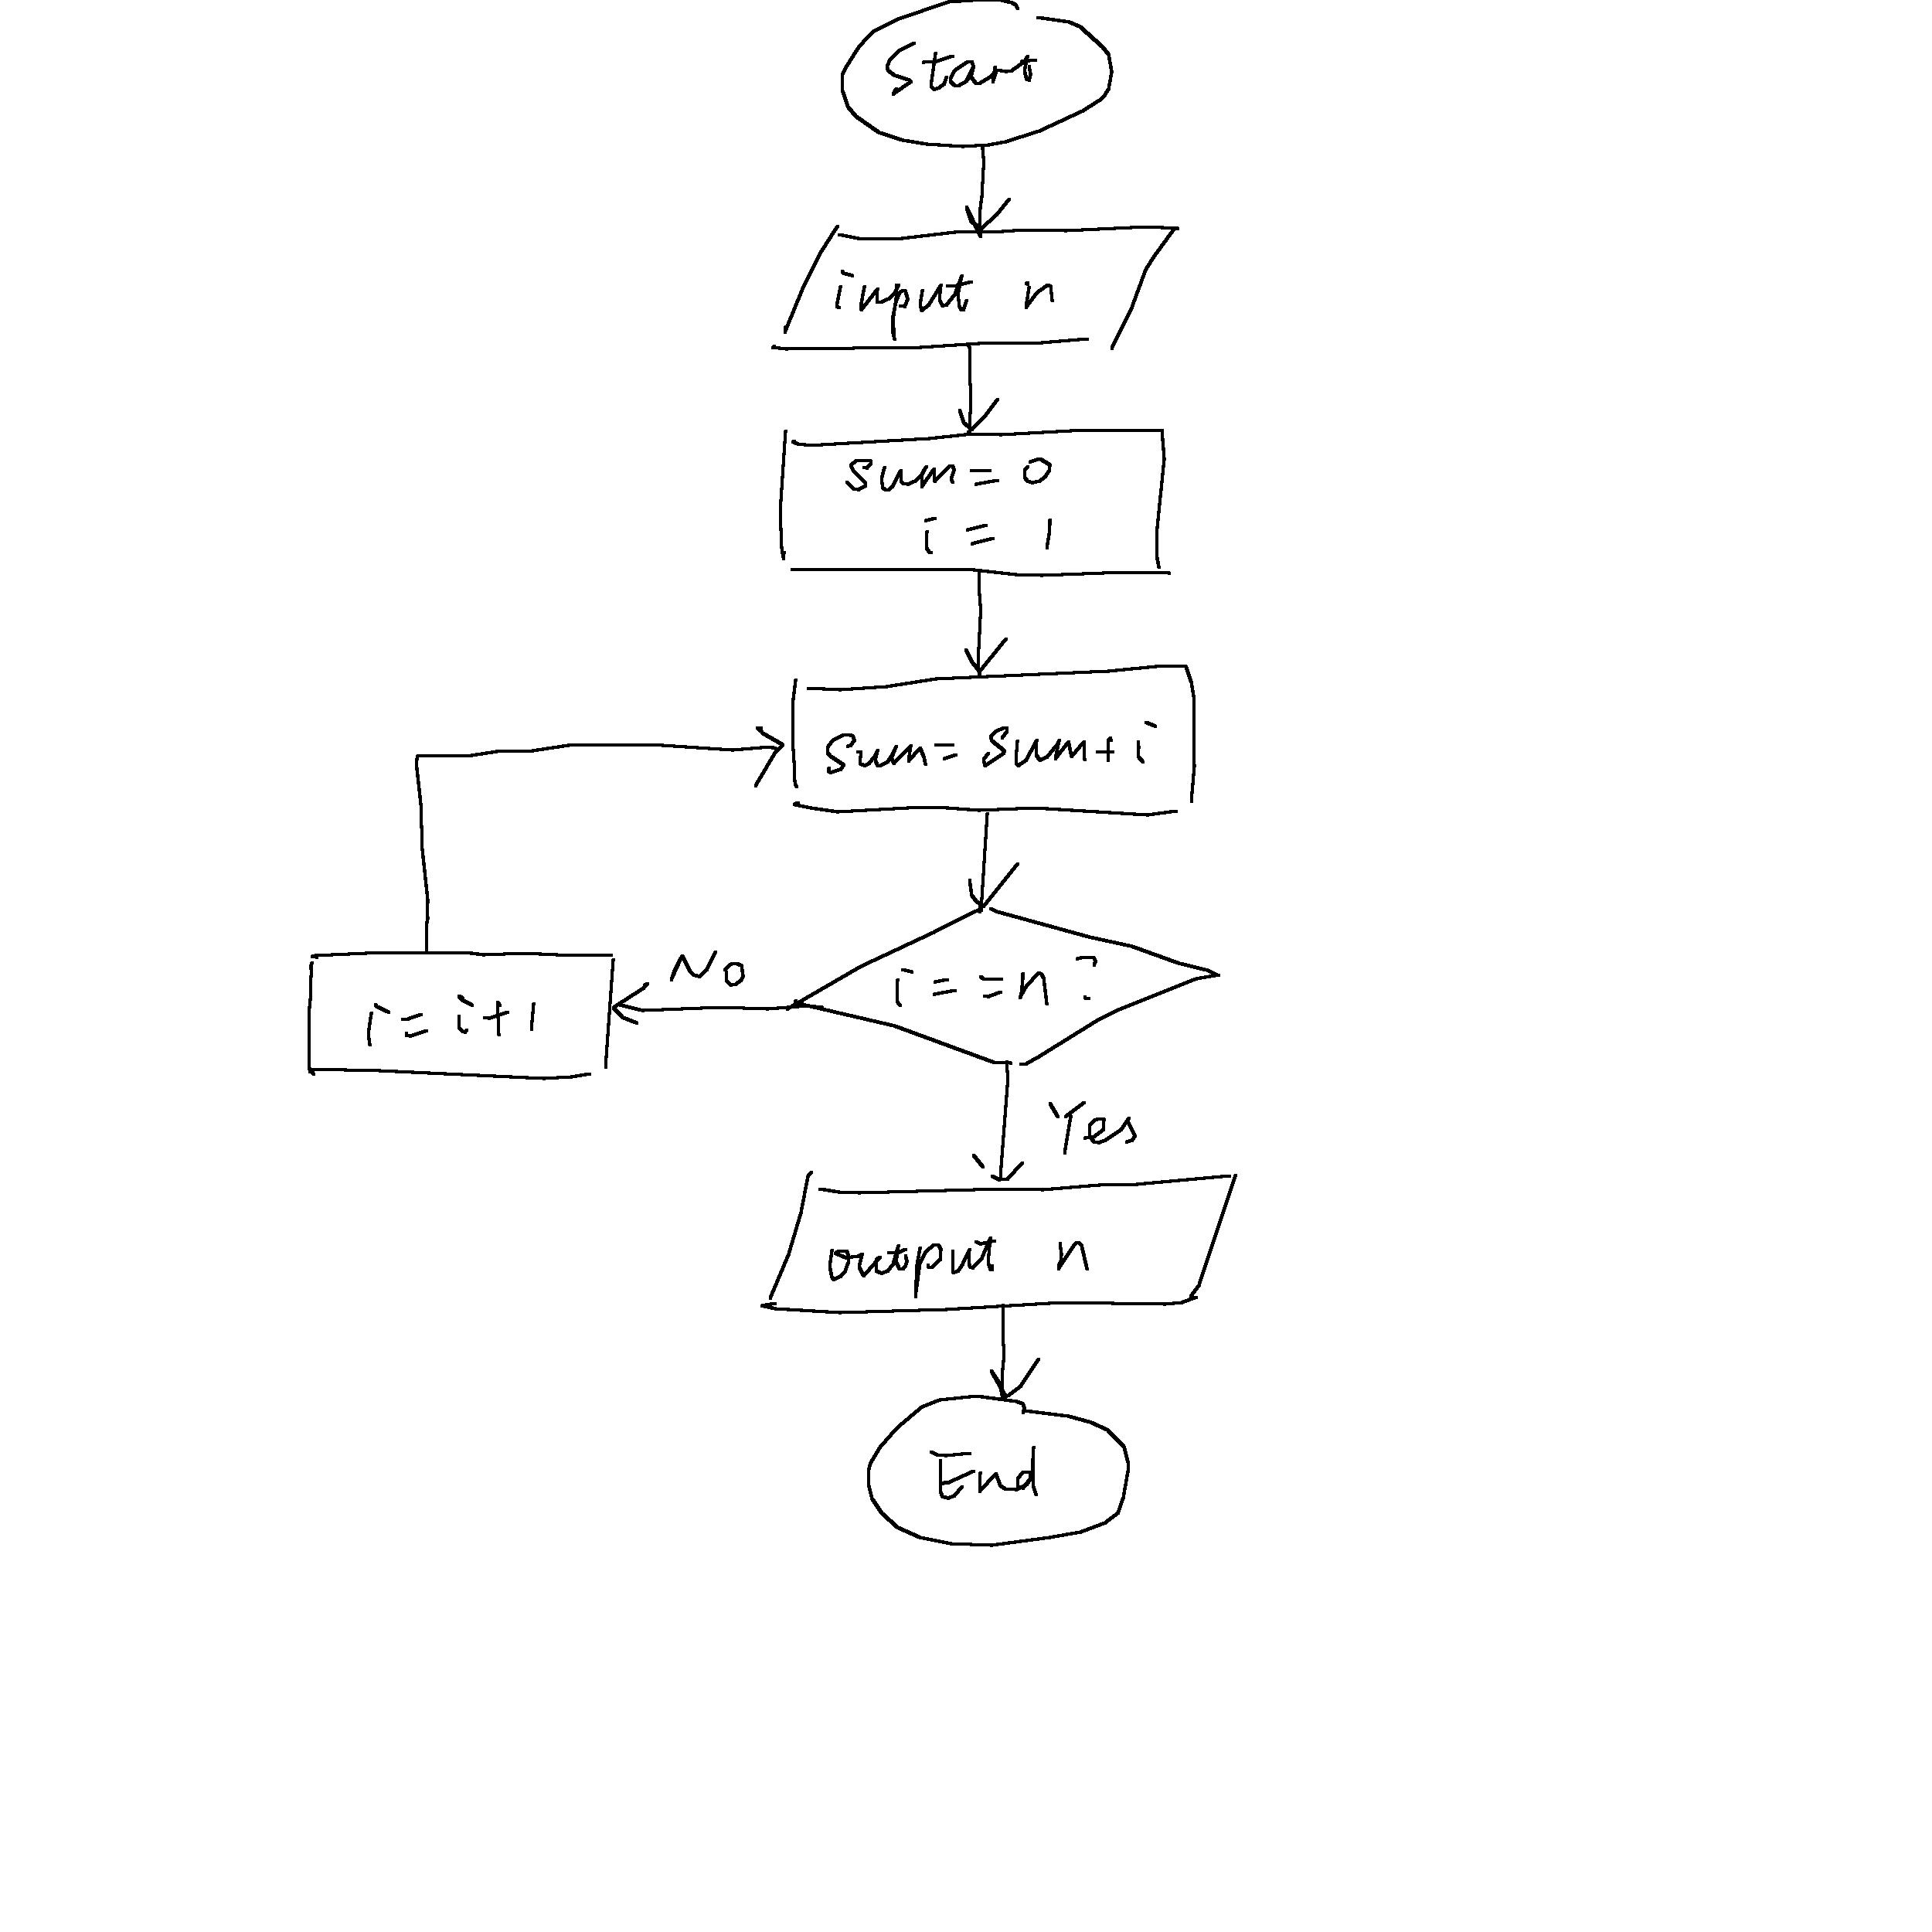 Start
input n
sum=0
i=1
sum=sum+i
i==n?
No
i=i+1
Yes
output n
End